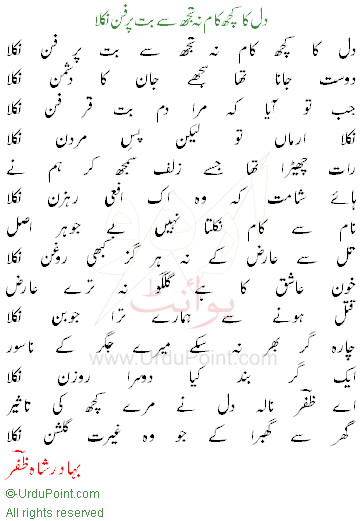 دل کا کچھ کام نہ تجھ سے بت پر فن نکلا
دل کا کچھ کام نہ تجھ سے بت پر فن نکلا
دوست جانا تھا تجھے جان کا دشمن نکلا
جب تو آیا کہ مرا دم بت قر فن نکلا
نکلا ارماں تو لیکن پس مردن نکلا
رات چھیڑا تھا جسے زلف سمجھ کر ہم نے
ہائے شامت کہ وہ اک افعی رہزن نکلا
نام سے کام نکلتا نہیں بے جوہر اصل
تل سے عارض کے نہ ہر گز کبھی روغن نکلا
خون عاشق کا ہے گلگو نہ ترے عارض
قتل ہونے سے ہمارے ترا جوبن نکلا
چارہ گر بھر نہ سکے میرے جگر کے ناسور
ایک گر بند کیا دوسرا روزن نکلا
اے ظفرؔ نالہ دل نے مرے کچھ کی تاثیر
گھر سے گھبرا کے جو وہ غیرت گلشن نکلا
بہادر شاہ ظفرؔ
اردو پوائنٹ
www.UrduPoint.com
©UrduPoint.com
All rights reserved